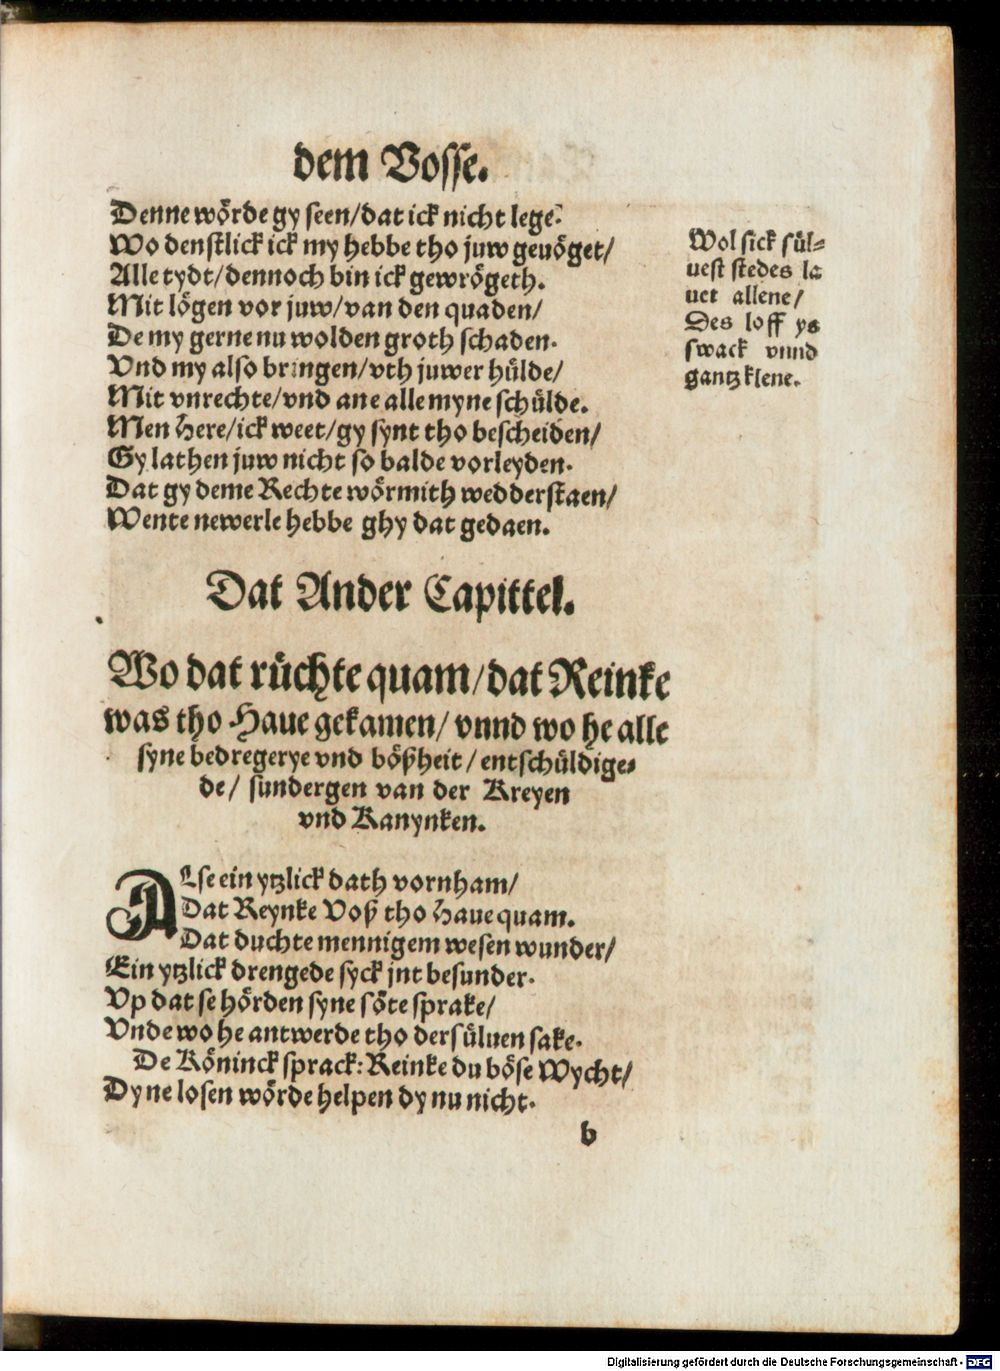 dem Vosse.
Denne wörde gy seen/dat ick nicht lege:
Wo denstlick ick my hebbe tho juw geuöget/
Alle tydt/dennoch bin ick gewrögeth.
Mit lögen vor juw/van den quaden/
De my gerne nu wolden groth schaden.
Vnd my also bringen/vth juwer hülde/
Mit vnrechte/vnd ane alle myne schülde.
Men Here/ick weet/gy synt tho bescheiden/
Gy lathen juw nicht so balde vorleyden.
Dat gy deme Rechte wörmith wedderstaen/
Wente newerle hebbe ghy dat gedaen.
Wol sick sül-
uest stedes la
uet allene/
Des loff ys
swack vnnd
gantz klene.
Dat Ander Capittel.
Wo dat rüchte quam/dat Reinke
was tho Haue gekamen/ vnnd wo he alle
syne bedregerye vnd bößheit/entschüldige-
de/ sundergen van der Kreyen
vnd Kanynken.
ALse ein ytzlick dath vornham/
Dat Reynke Voß tho Haue quam.
Dat duchte mennigem wesen wunder/
Ein ytzlick drengede syck jnt besunder.
Vp dat se hörden syne söte sprake/
Vnde wo he antwerde tho der süluen sake.
De Köninck sprack: Reinke du böse Wycht/
Dyne losen wörde helpen dy nu nicht.
b
Digitalisierung gefördert durch die Deutsche Forschungsgemeinschaft - DFG